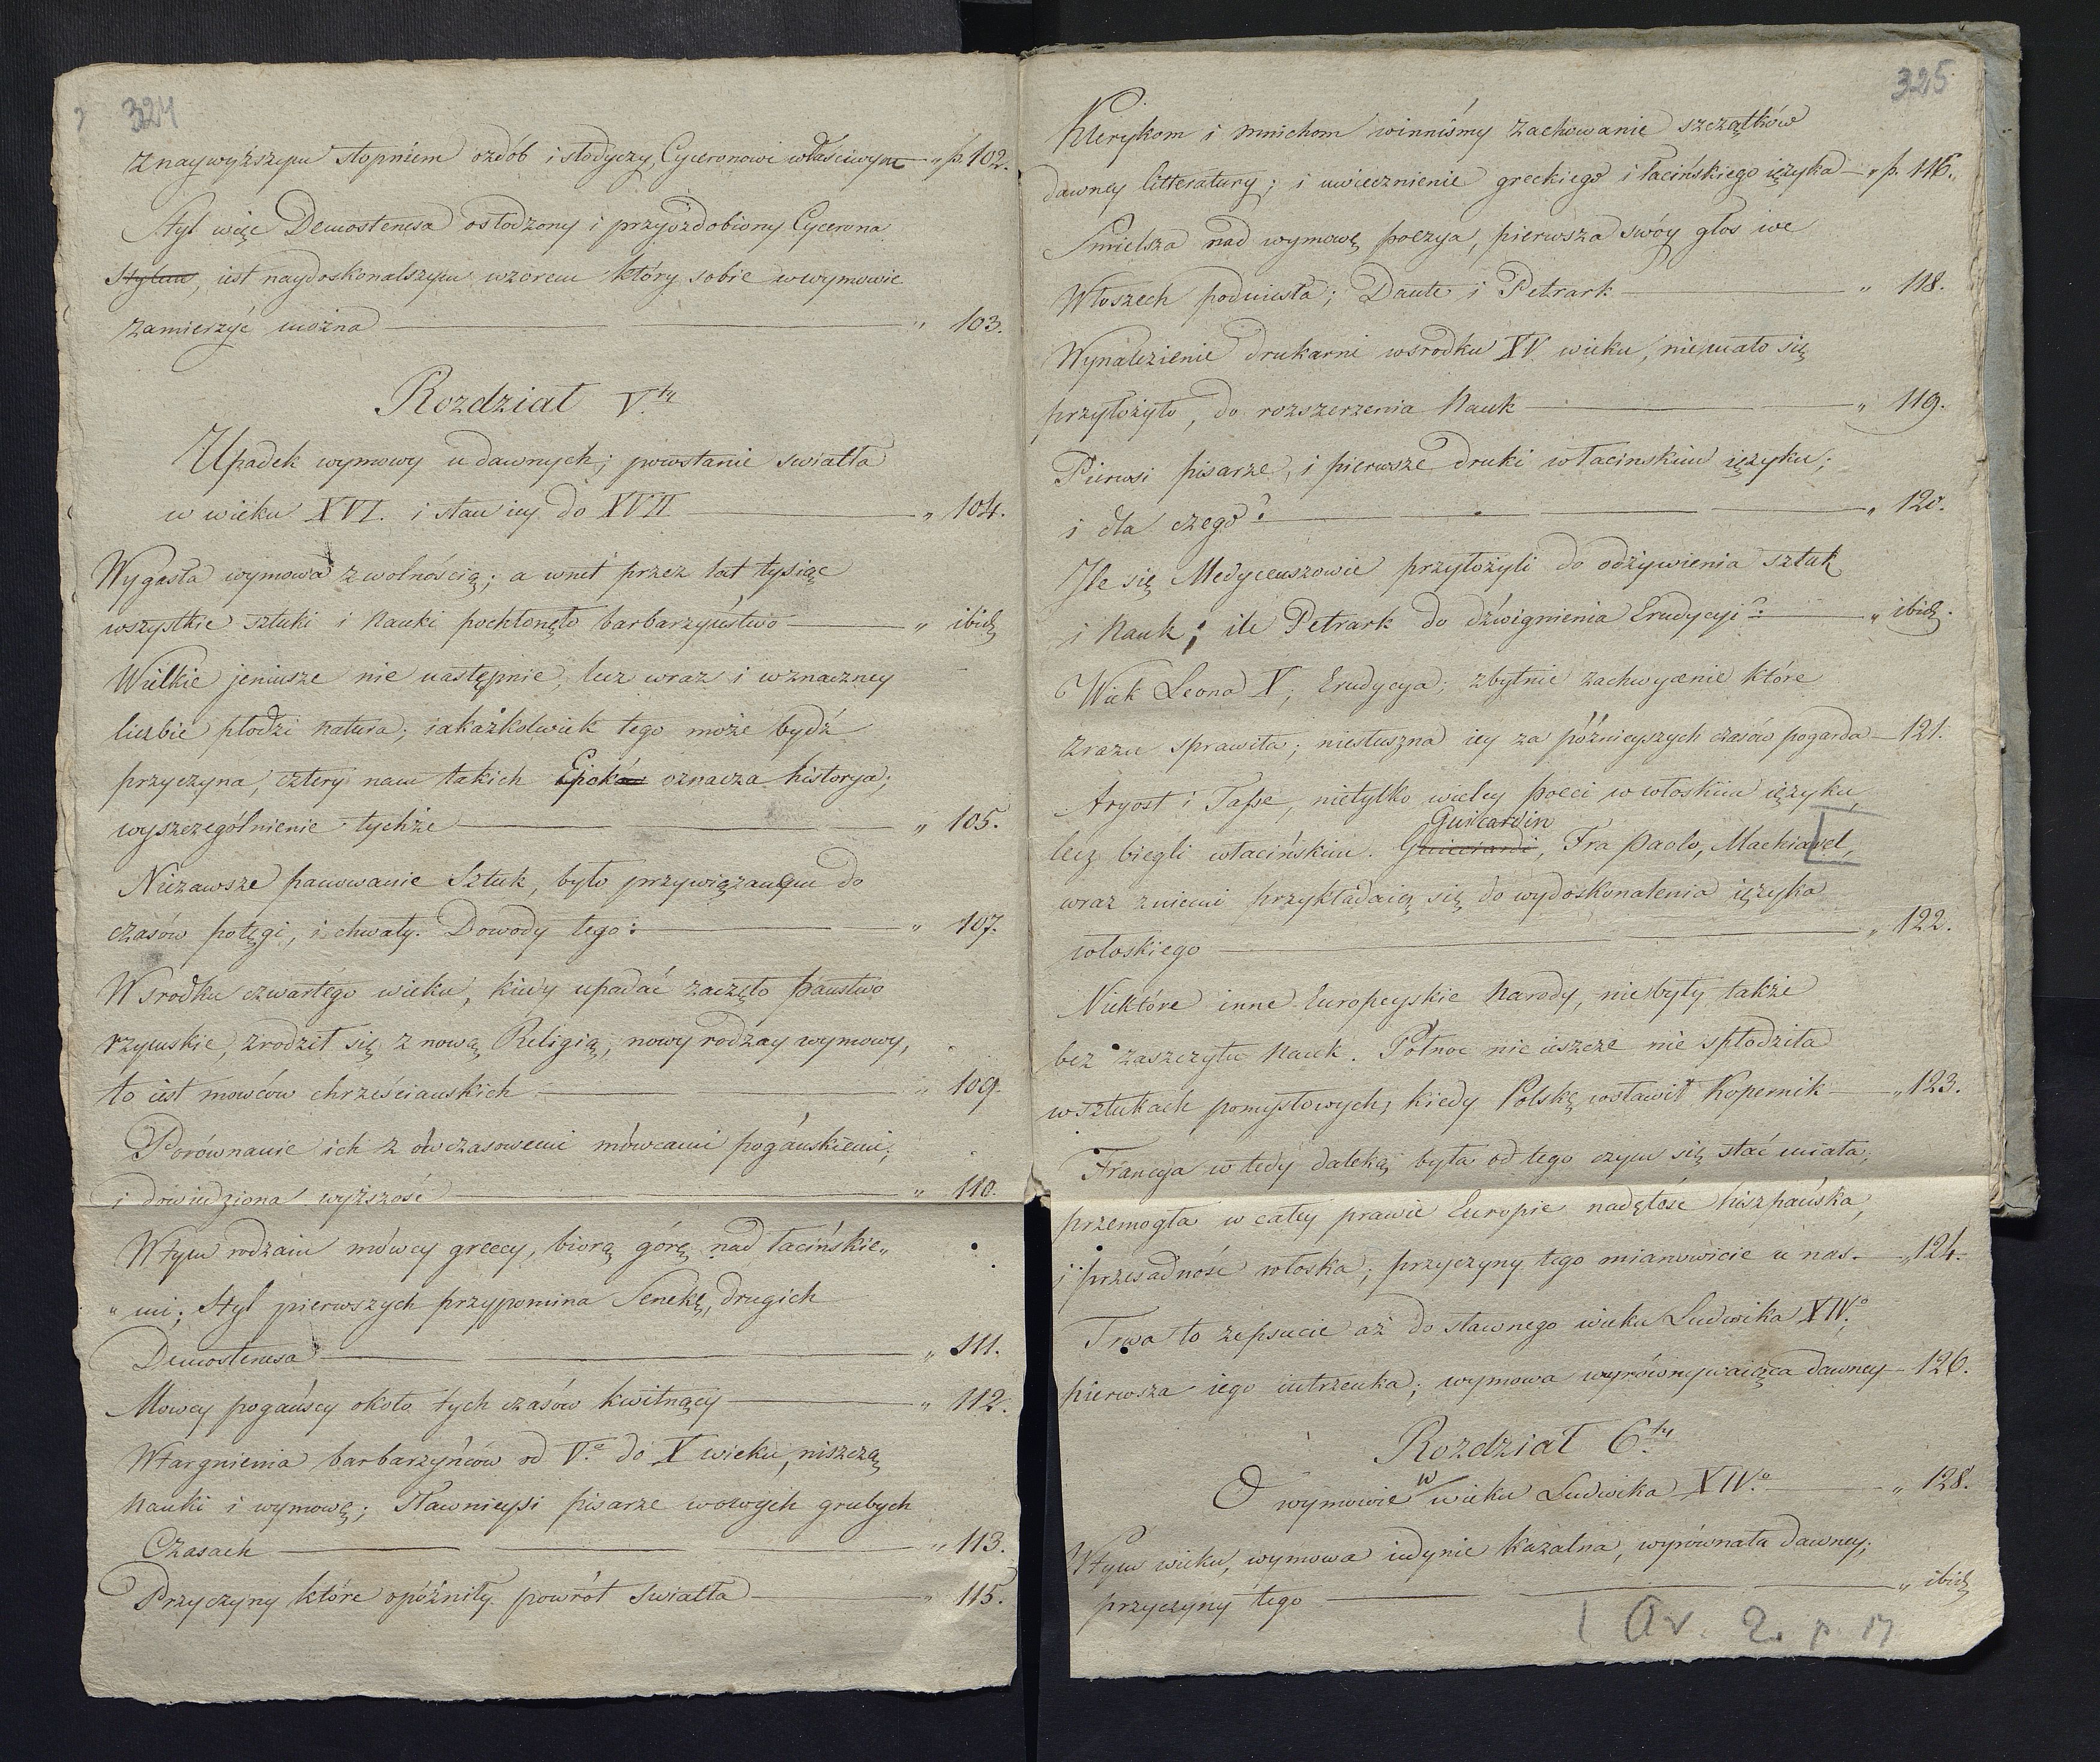 324
z naywyższym stopniem ozdób i słodyczy, Cyceronowi właściwym — „ p. 102.
Styl więc Demostenesa osłodzony i przyozdobiony Cycerona
Stylem, iest naydoskonalszym wzorem który sobie w wymowie
zamierzyć można — „ 103.
Rozdział V.ty
Upadek wymowy u dawnych; powstanie swiatła
w wieku XVI. i stan iey do XVII — „ 104.
Wygasła wymowa z wolnością; a wnet przez lat tysiąc
wszystkie sztuki i Nauki pochłonęło barbarzyństwo — „ ibid.
Wielkie jeniusze nie następnie, lecz wraz i w znaczney
liczbie płodzi natura; iakażkolwiek tego może bydź
przyczyna, cztery nam takich Epoków oznacza historya;
wyszczególnienie tychże — „ 105.
Niezawsze panowanie Sztuk, było przywiązanym do
czasów potęgi, i chwały. Dowody tego: — „ 107.
W srodku czwartego wieku, kiedy upadać zaczęło państwo
rzymskie, zrodził się z nową Religią, nowy rodzay wymowy,
to iest mowców chrześciańskich — „ 109.
Porównanie ich z ówczasowemi mówcami pogańskiemi;
i dowiedziona wyższość — „ 110.
W tym rodzaiu mówcy greccy, biorą górę nad łacińskie„
„mi; Styl pierwszych przypomina Senekę, drugich
Demostenesa — „ 111.
Mowcy pogańscy około tych czasów kwitnący — „ 112.
Wtargnienia barbarzyńców od V.o do X wieku, niszczą
Nauki i wymowę; Sławnieysi pisarze w owych grubych
Czasach — „ 113.
Przyczyny które opóźniły powrót swiatła — „ 115.
325
Klerykom i mnichom winniśmy zachowanie szczątków
dawney litteratury; i uwiecznienie greckiego i łacińskiego ięzyka — „ p. 116.
Smielsza nad wymowę poezya, pierwsza swóy głos we
Włoszech podniosła; Dante i Petrark — „ 118.
Wynalezienie drukarni wsrodku XV wieku, niemało się
przyłożyło, do rozszerzenia Nauk — „ 119.
Pierwsi pisarze, i pierwsze druki w łacinskim ięzyku;
i dla czego? — „ 120.
Ile się Medyceuszowie przyłożyli do odżywienia sztuk
i Nauk; ile Petrark do dźwignienia Erudycyi? — „ ibid.
Wiek Leona X; Erudycya; zbytnie zachwycenie które
zrazu sprawiła; niesłuszna iey za późnieyszych czasów pogarda — 121.
Aryost i Tasse, nietylko wielcy poeci w włoskim ięzyku,
Guicardin
lecz biegli w łacińskim. Guicciardi, Fra Paolo, Machiavel,
wraz z niemi przykładaią się do wydoskonalenia ięzyka
włoskiego — „ 122.
Niektóre inne Europeyskie Narody, nie były także
bez zaszczytu Nauk. Północ nic ieszcze nie spłodziła
w sztukach pomysłowych, kiedy Polskę wsławił Kopernik — „ 123.
Francya wtedy daleką była od tego czym się stać miała;
przemogła w całey prawie Europie nadętość hiszpańska,
i przesadność włoska; przyczyny tego mianowicie u nas. — „ 124.
Trwa to zepsucie aż do sławnego wieku Ludwika XIV.o
pierwsza iego iutrzenka; wymowa wyrównywaiąca dawney — 126.
Rozdział 6.ty
O wymowie w wieku Ludwika XIV.o — „ 128.
W tym wieku, wymowa iedynie kazalna, wyrównała dawney;
przyczyny tego — „ ibid.
Av. 2. p. 17